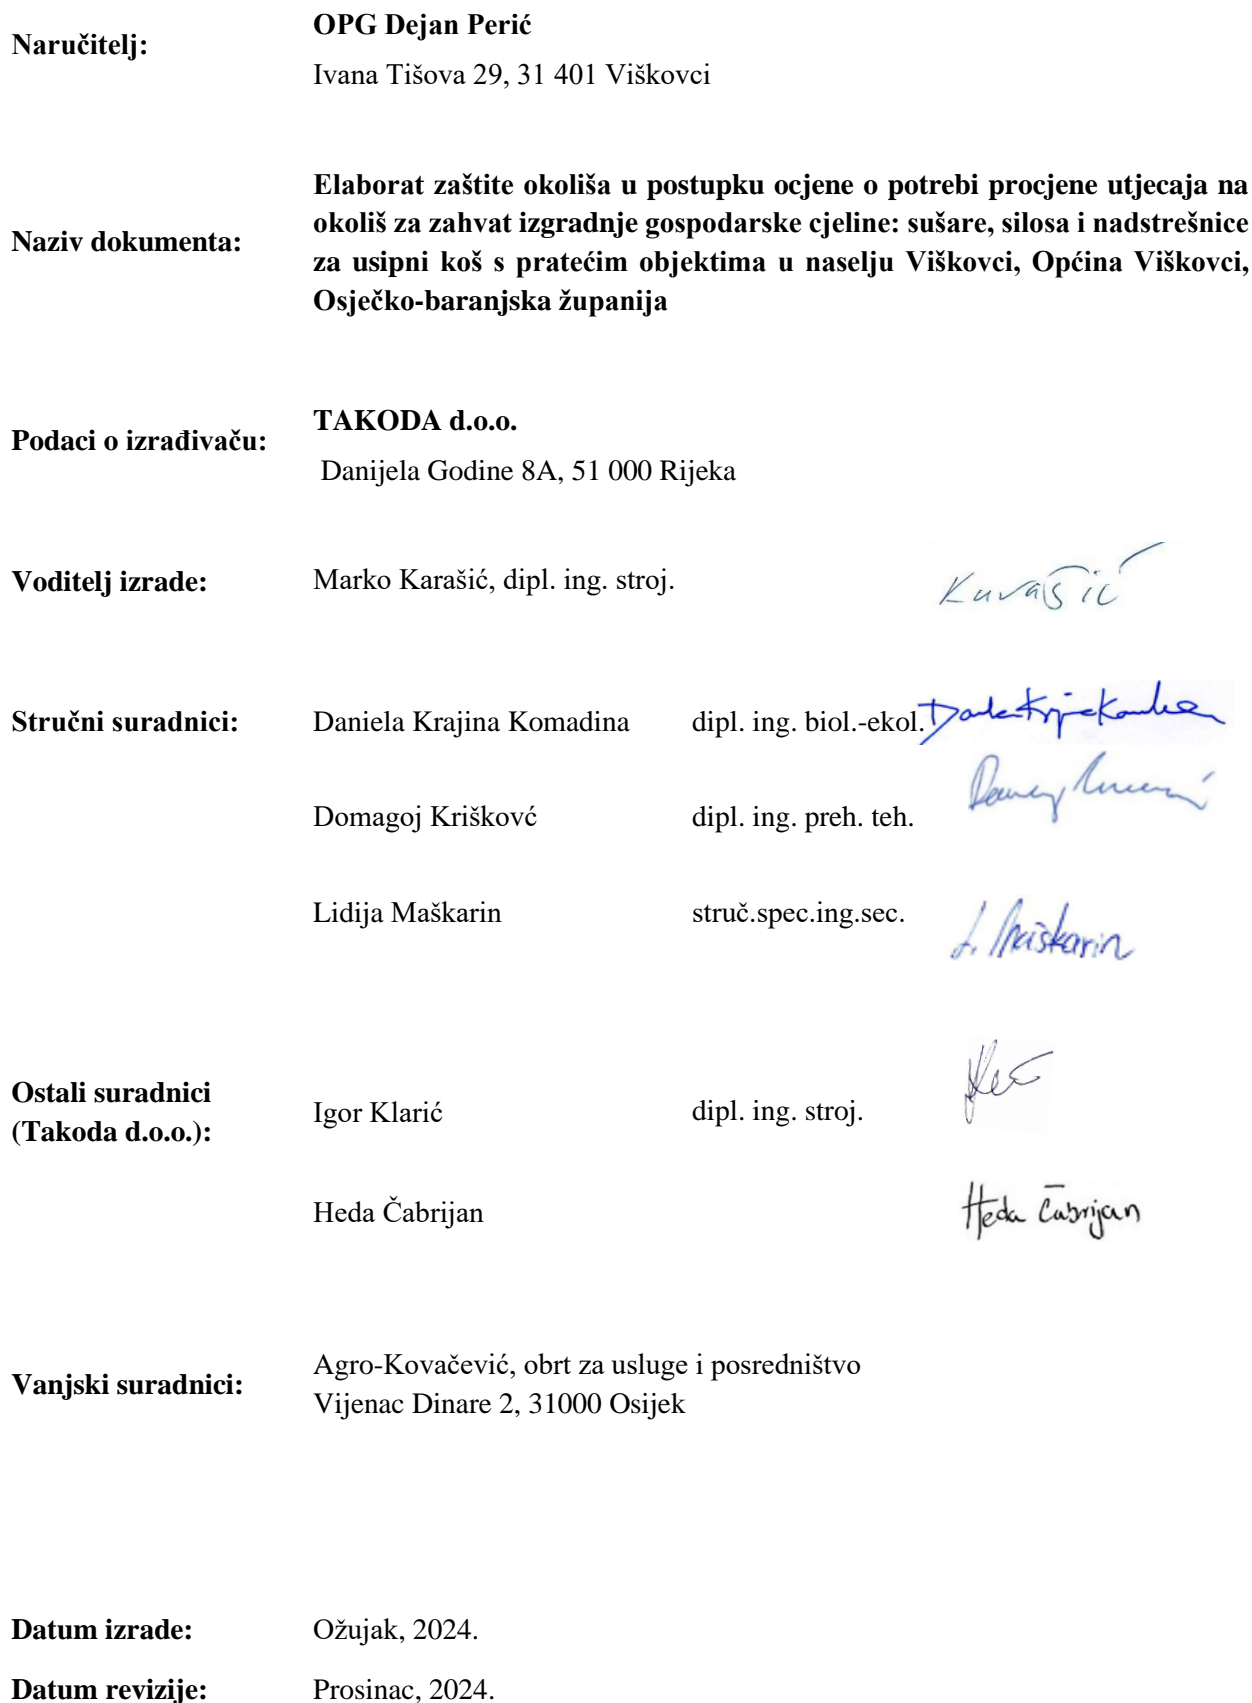 Naručitelj:
OPG Dejan Perić
Ivana Tišova 29, 31 401 Viškovci
Naziv dokumenta:
Elaborat zaštite okoliša u postupku ocjene o potrebi procjene utjecaja na
okoliš za zahvat izgradnje gospodarske cjeline: sušare, silosa i nadstrešnice
za usipni koš s pratećim objektima u naselju Viškovci, Općina Viškovci,
Osječko-baranjska županija
Podaci o izrađivaču:
TAKODA d.o.o.
Danijela Godine 8A, 51 000 Rijeka
Voditelj izrade: Marko Karašić, dipl. ing. stroj. Karašić
Stručni suradnici: Daniela Krajina Komadina dipl. ing. biol.-ekol.
Domagoj Kriškovć dipl. ing. preh. teh.
Lidija Maškarin struč.spec.ing.sec. L. Maškarin
Ostali suradnici
(Takoda d.o.o.):
Igor Klarić dipl. ing. stroj.
Heda Čabrijan Heda Čabrijan
Vanjski suradnici:
Agro-Kovačević, obrt za usluge i posredništvo
Vijenac Dinare 2, 31000 Osijek
Datum izrade: Ožujak, 2024.
Datum revizije: Prosinac, 2024.